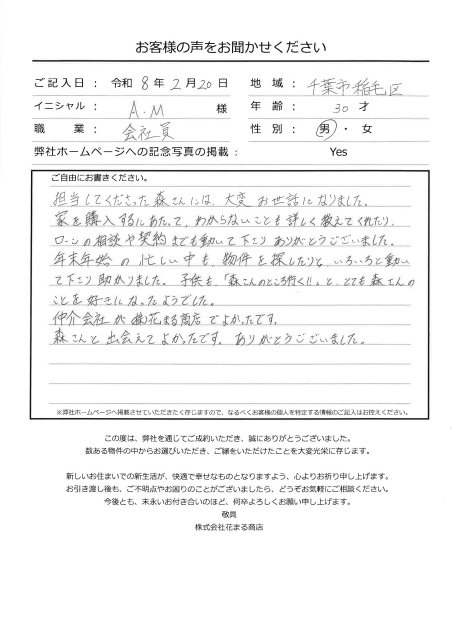 お客様の声をお聞かせください
ご記入日 : 令和 8 年 2 月 20 日 地 域 : 千葉市稲毛区
イニシャル : A.M 様 年 齢 : 30 才
職 業 : 会社員 性 別 : 男 ・ 女
弊社ホームページへの記念写真の掲載 : Yes
ご自由にお書きください。
担当してくださった森さんには、大変 お世話になりました。
家を購入するにあたって、わからないことも詳しく教えてくれたり、
ローンの相談や契約までも動いて下さり ありがとうございました。
年末年始の 忙しい中も、物件を探したりと、いろいろと動い
て下さり助かりました。 子供も、「森さんのところ行く!!」と、とても森さんの
ことを好きになったようでした。
仲介会社が ㈱花まる商店でよかったです。
森さんと出会えてよかったです。ありがとうございました。
※弊社ホームページへ掲載させていただきたく存じますので、なるべくお客様の個人を特定する情報のご記入はお控えください。
この度は、弊社を通じてご成約いただき、誠にありがとうございました。
数ある物件の中からお選びいただき、ご縁をいただけたことを大変光栄に存じます。
新しいお住まいでの新生活が、快適で幸せなものとなりますよう、心よりお祈り申し上げます。
お引き渡し後も、ご不明点やお困りのことがございましたら、どうぞお気軽にご相談ください。
今後とも、末永いお付き合いのほど、何卒よろしくお願い申し上げます。
敬具
株式会社花まる商店